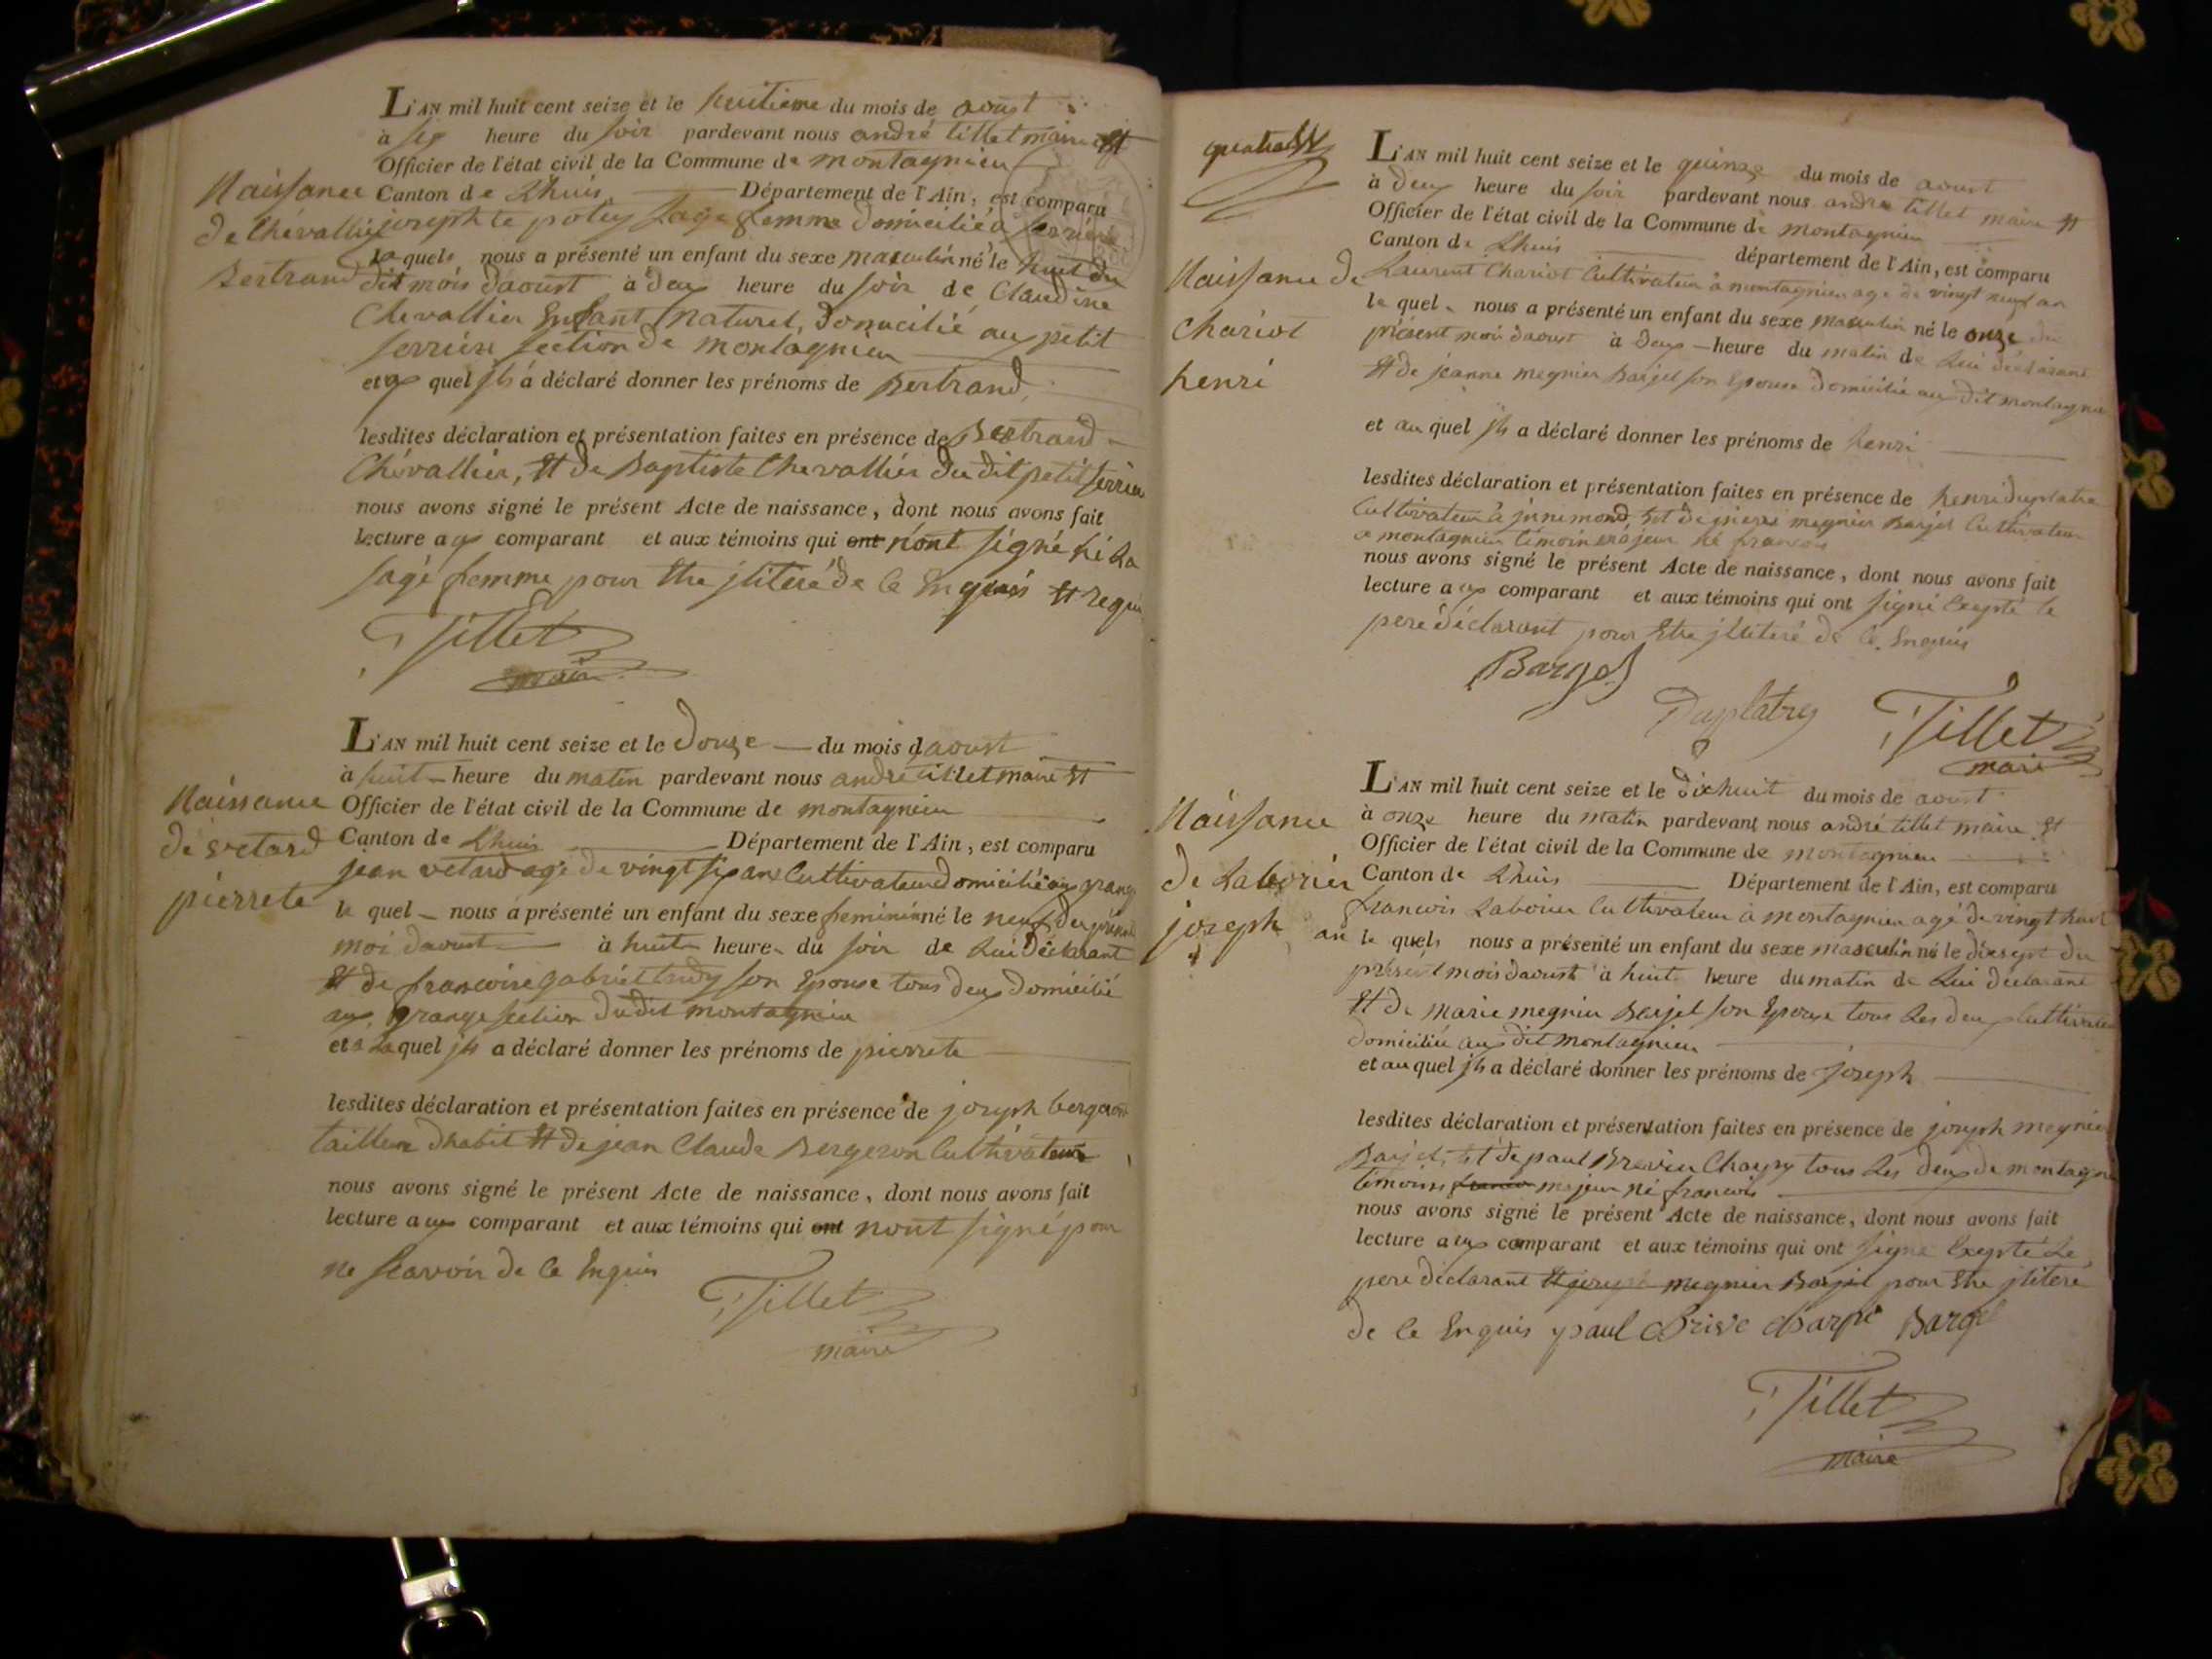 L'AN mil huit cent seize et le huitieme du mois de aoust
à six heure du soir pardevant nous andré tillet maire Et
Officier de l'état civil de la Commune de montagnieu
Canton de Lhuis Département de l'Ain, est comparu
Naissance
de Chevallier
Bertrand
josephte poley sage femme domicilié a serriere
la quel nous a présenté un enfant du sexe masculin né le huit du
dit mois daoust à deux heure du soir de Claudine
Chevallier Enfant naturel, domicilié au petit
serriere section de montagnieu
et quel ils a déclaré donner les prénoms de Bertrand
lesdites déclaration et présentation faites en présence de Bertrand
Chevallier, Et de Baptiste Chevallier du dit petit serriere
nous avons signé le présent Acte de naissance, dont nous avons fait
lecture a ces comparant et aux témoins qui ont n'ont signé ni la
sage femme pour Etre jlitéré de ce Enquis Et requis
Tillet
maire
L'AN mil huit cent seize et le douze du mois daoust
à huit heure du matin pardevant nous andré tillet maire Et
Officier de l'état civil de la Commune de montagnieu
Canton de Lhuis Département de l'Ain, est comparu
Naissance
de vetard
pierrete
jean vetard agé de vingt six ans Cultivateur domicilié aux grange
le quel nous a présenté un enfant du sexe feminin né le neuf du présent
moi daoust à huit heure du soir de Lui Déclarant
Et de francoise gabriel son Epouse tous deux domicilié
aux grange section dudit montagnieu
et a la quel ils a déclaré donner les prénoms de pierrete
lesdites déclaration et présentation faites en présence de joseph bergeron
tailleur dhabit Et de jean Claude Bergeron Cultivateur
nous avons signé le présent Acte de naissance, dont nous avons fait
lecture a ces comparant et aux témoins qui ont nont signé pour
ne scavoir de ce Enquis
Tillet
maire
L'AN mil huit cent seize et le quinze du mois de aoust
à deux heure du soir pardevant nous andré tillet maire Et
Officier de l'état civil de la Commune de montagnieu
Canton de Lhuis département de l'Ain, est comparu
Naissance de
Chariot
henri
Laurent Chariot Cultivateur à montagnieu agé de vingt neuf an
le quel nous a présenté un enfant du sexe masculin né le onze du
présent moi daoust à deux heure du matin de Lui déclarant
Et de jeanne megnier Barjel son Epouse domicilié au dit montagnieu
et au quel ils a déclaré donner les prénoms de henri
lesdites déclaration et présentation faites en présence de henri duplatre
Cultivateur à Et de megnier Barjel Cultivateur
a montagnieu témoin majeur né francois
nous avons signé le présent Acte de naissance, dont nous avons fait
lecture a ces comparant et aux témoins qui ont signé Exepté le
pere déclarant pour Etre jlliteré de ce Enquis
Bargel
Duplatre
Tillet
maire
L'AN mil huit cent seize et le dix huit du mois de aoust
à onze heure du matin pardevant nous andré tillet maire Et
Officier de l'état civil de la Commune de montagnieu
Canton de Lhuis Département de l'Ain, est comparu
Naissance
de Laborier
joseph
francois Laborier Cultivateur à montagnieu agé de vingt huit
an le quel nous a présenté un enfant du sexe masculin né le dixsept du
présent mois daoust à huit heure du matin de Lui déclarant
Et de marie megnier Berjel son Epouse tous Les deux Cultivateur
domicilié au dit montagnieu
et au quel ils a déclaré donner les prénoms de joseph
lesdites déclaration et présentation faites en présence de joseph megnier
Barjel Et de paul tous Les deux de montagnieu
témoins majeur né francois
nous avons signé le présent Acte de naissance, dont nous avons fait
lecture a ces comparant et aux témoins qui ont signé Exepté Le
pere déclarant Et joseph megnier Barjel pour Etre jliteré
de ce Enquis paul Bargel
Tillet
maire